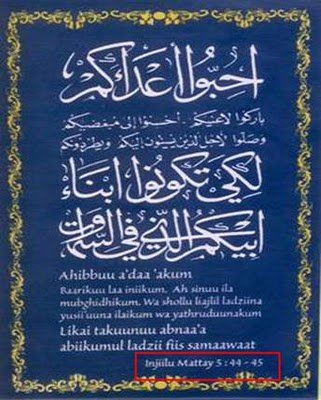 احبّوا اعداءكم
باركوا لاعنيكم . احسنوا إلى مبغضيكم
وصلّوا لاجل الذين يسيئون إليكم ويطردونكم
لكي تكونوا ابناء
ابيكم الذي في السموات
Ahibbuu a'daa 'akum
Baarikuu laa iniikum. Ah sinuu ila
mubghidhikum. Wa shollu liajlil ladziina
yusii'uuna ilaikum wa yathruduunakum
Likai takuunuu abnaa'a
abiikumul ladzii fiis samaawaat
Injiilu Mattay 5 : 44 - 45